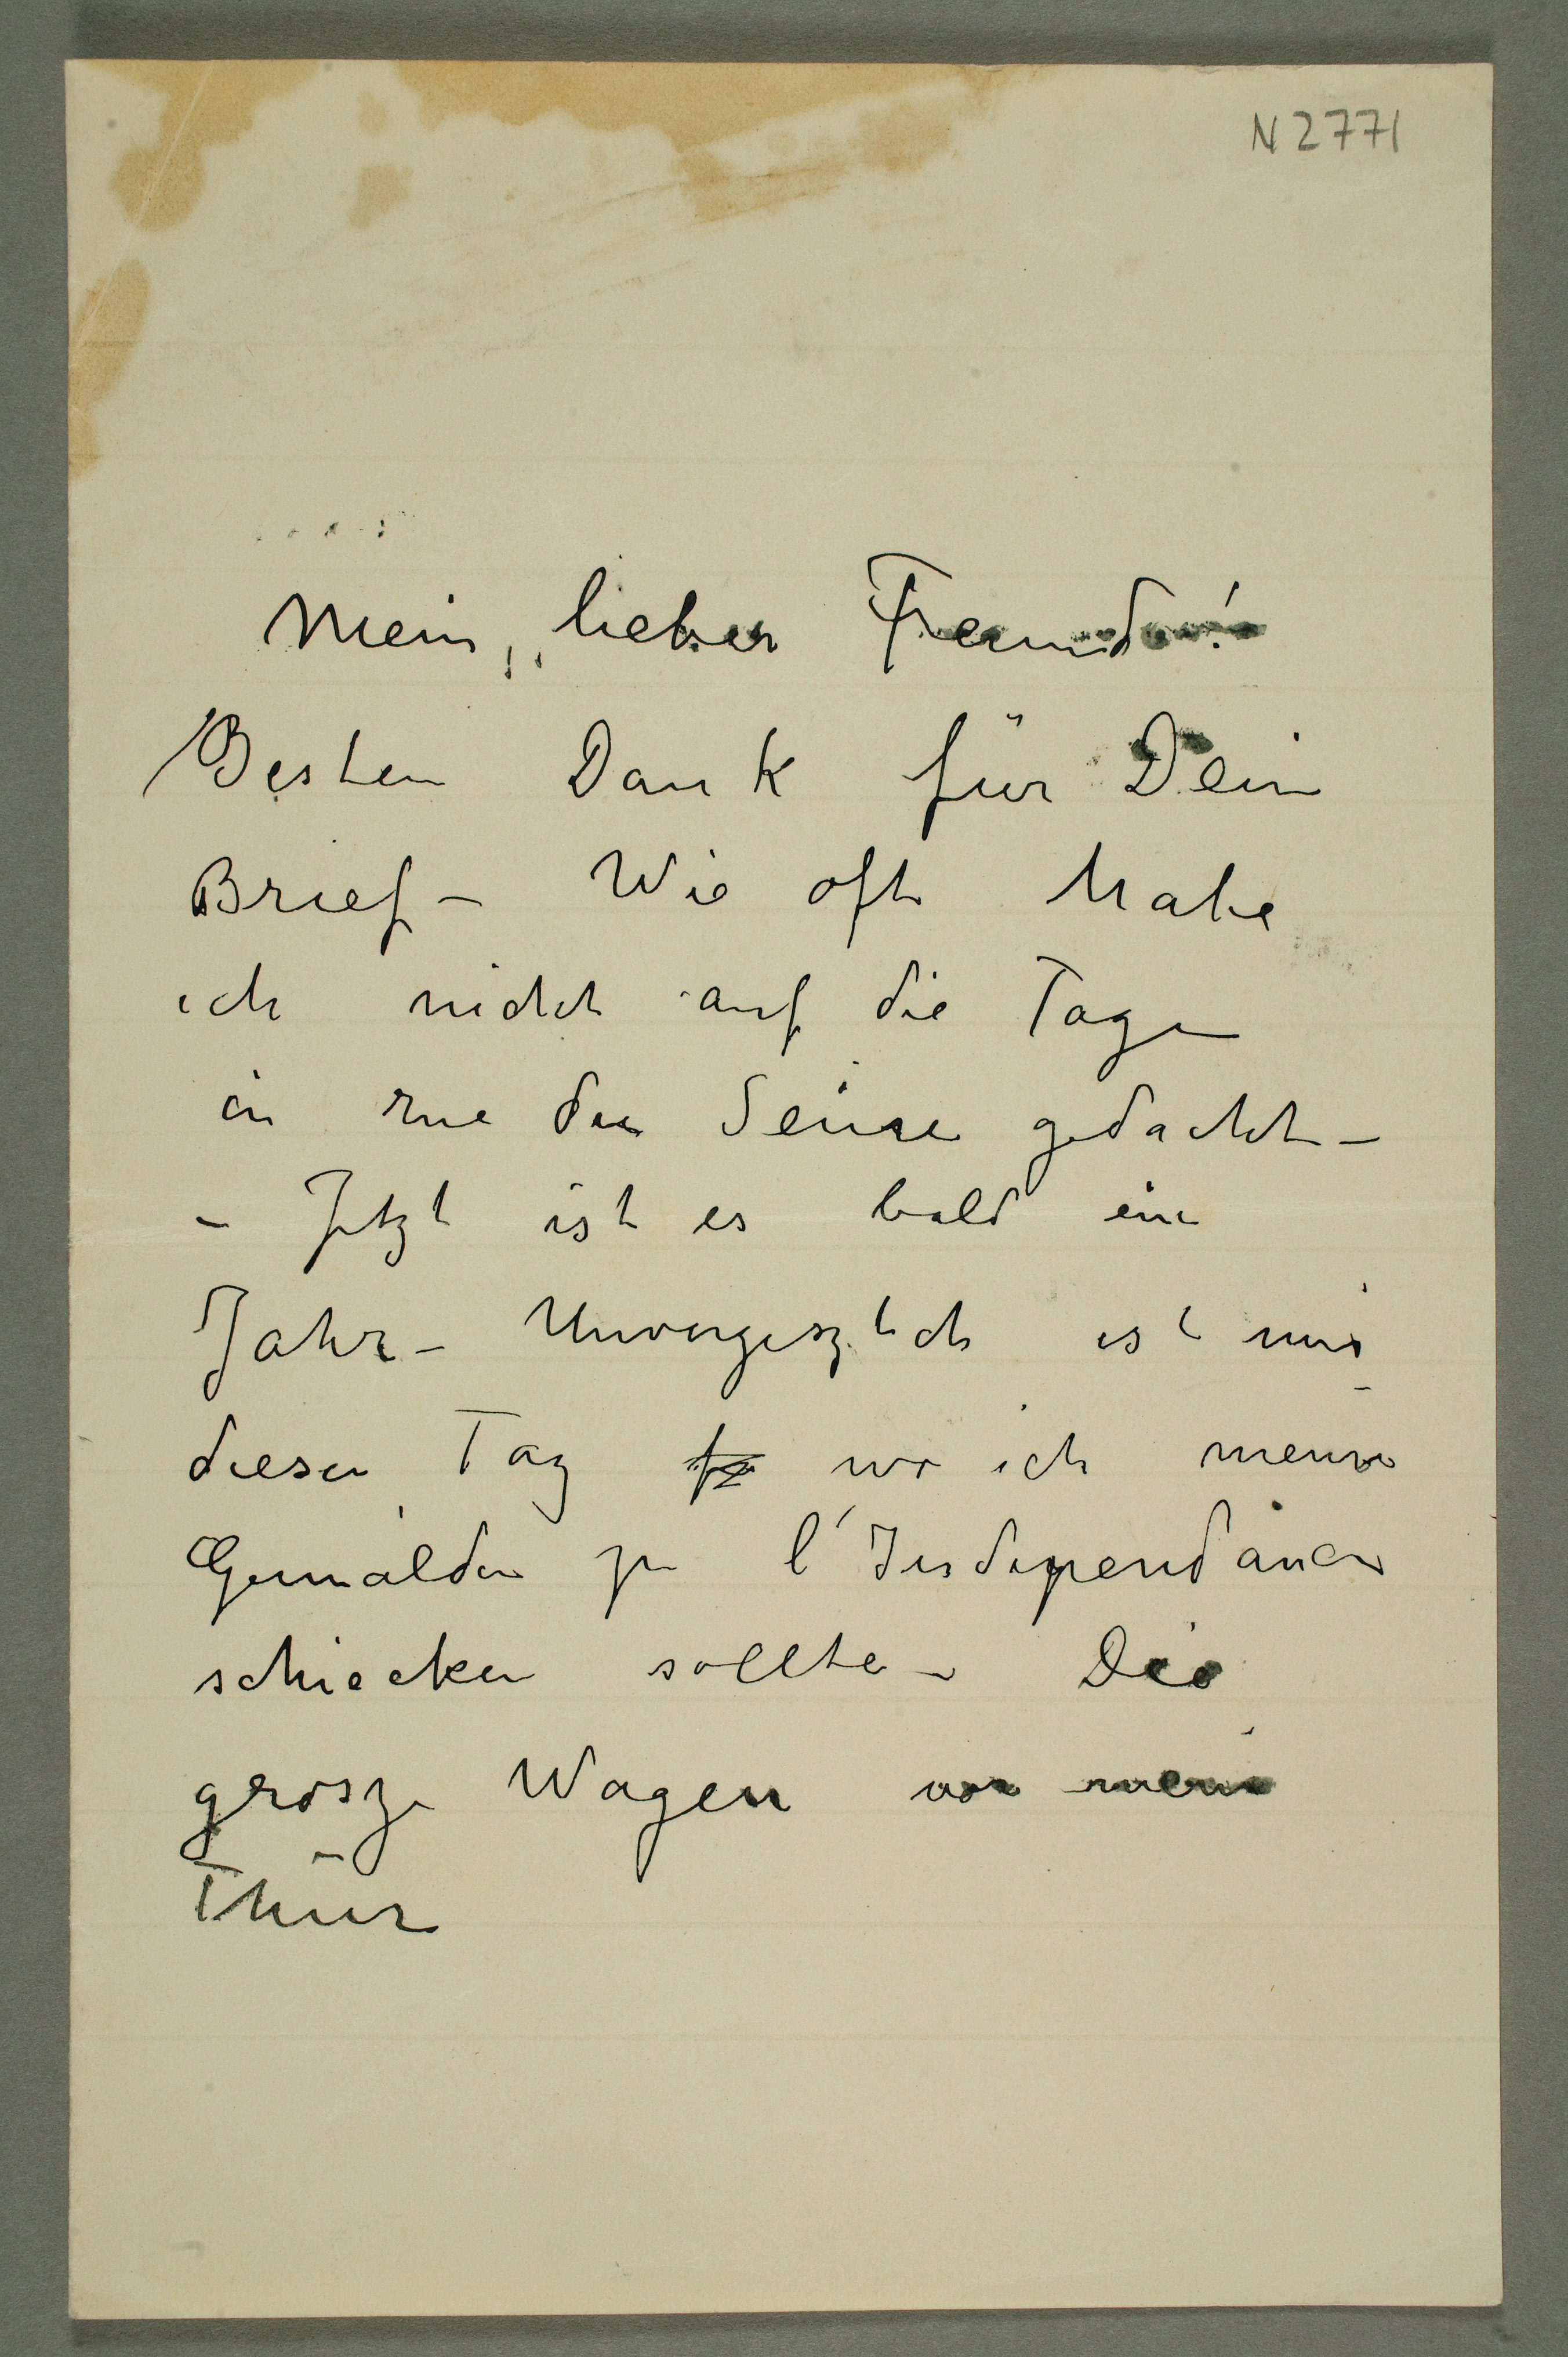 N 2771
Mein, lieber Freund!
Besten Dank für Dein
Brief – Wie oft habe
ich nicht auf die Tage
in rue de Seine gedacht –
– Jetzt ist es bald ein
Jahr – Unvergeszlich ist mir
dieser Tag wo ich meine
Gemälden zu l'Independance
schiecken sollte – Die
grosze Wagen vor mein
Thür